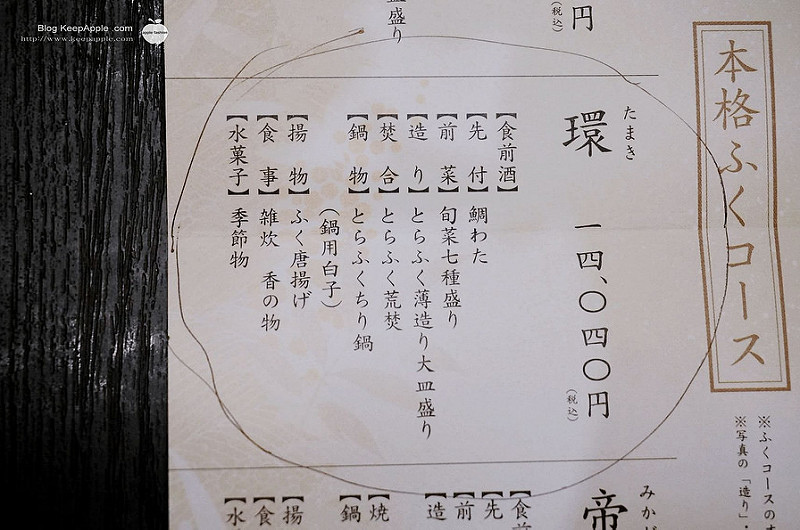 Blog KeepApple .com
http://www.keepapple.com
apple fashion
本格ふくコース
※ふくコースの
※写真の「造り」
円
(税込)
皿盛り
たまき
環 一四、〇四〇円
(税込)
【食前酒】
【先付】鯛わた
【前菜】旬菜七種盛り
【造り】とらふく薄造り大皿盛り
【焚合】とらふく荒焚
【鍋物】とらふくちり鍋
(鍋用白子)
【揚物】ふく唐揚げ
【食事】雑炊 香の物
【水菓子】季節物
みか
帝
【食前
【先
【前
【造
【焼
【鍋
【揚
【食
【水